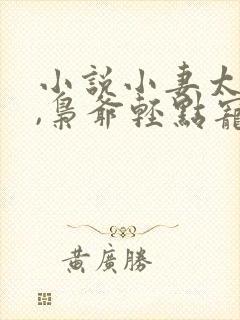 小說小妻太
,梟爺輕點寵
黃廣勝